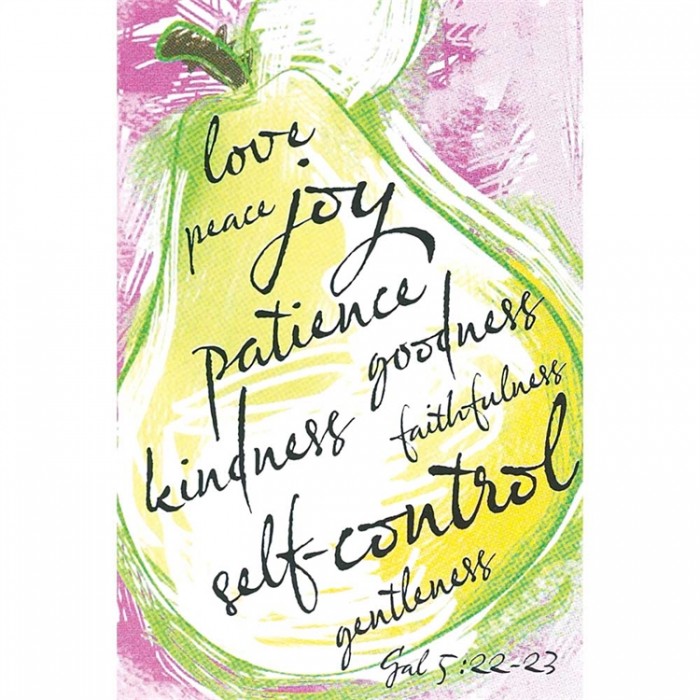 love
peace joy
patience
goodness
kindness faithfulness
self-control
gentleness
Gal 5:22-23